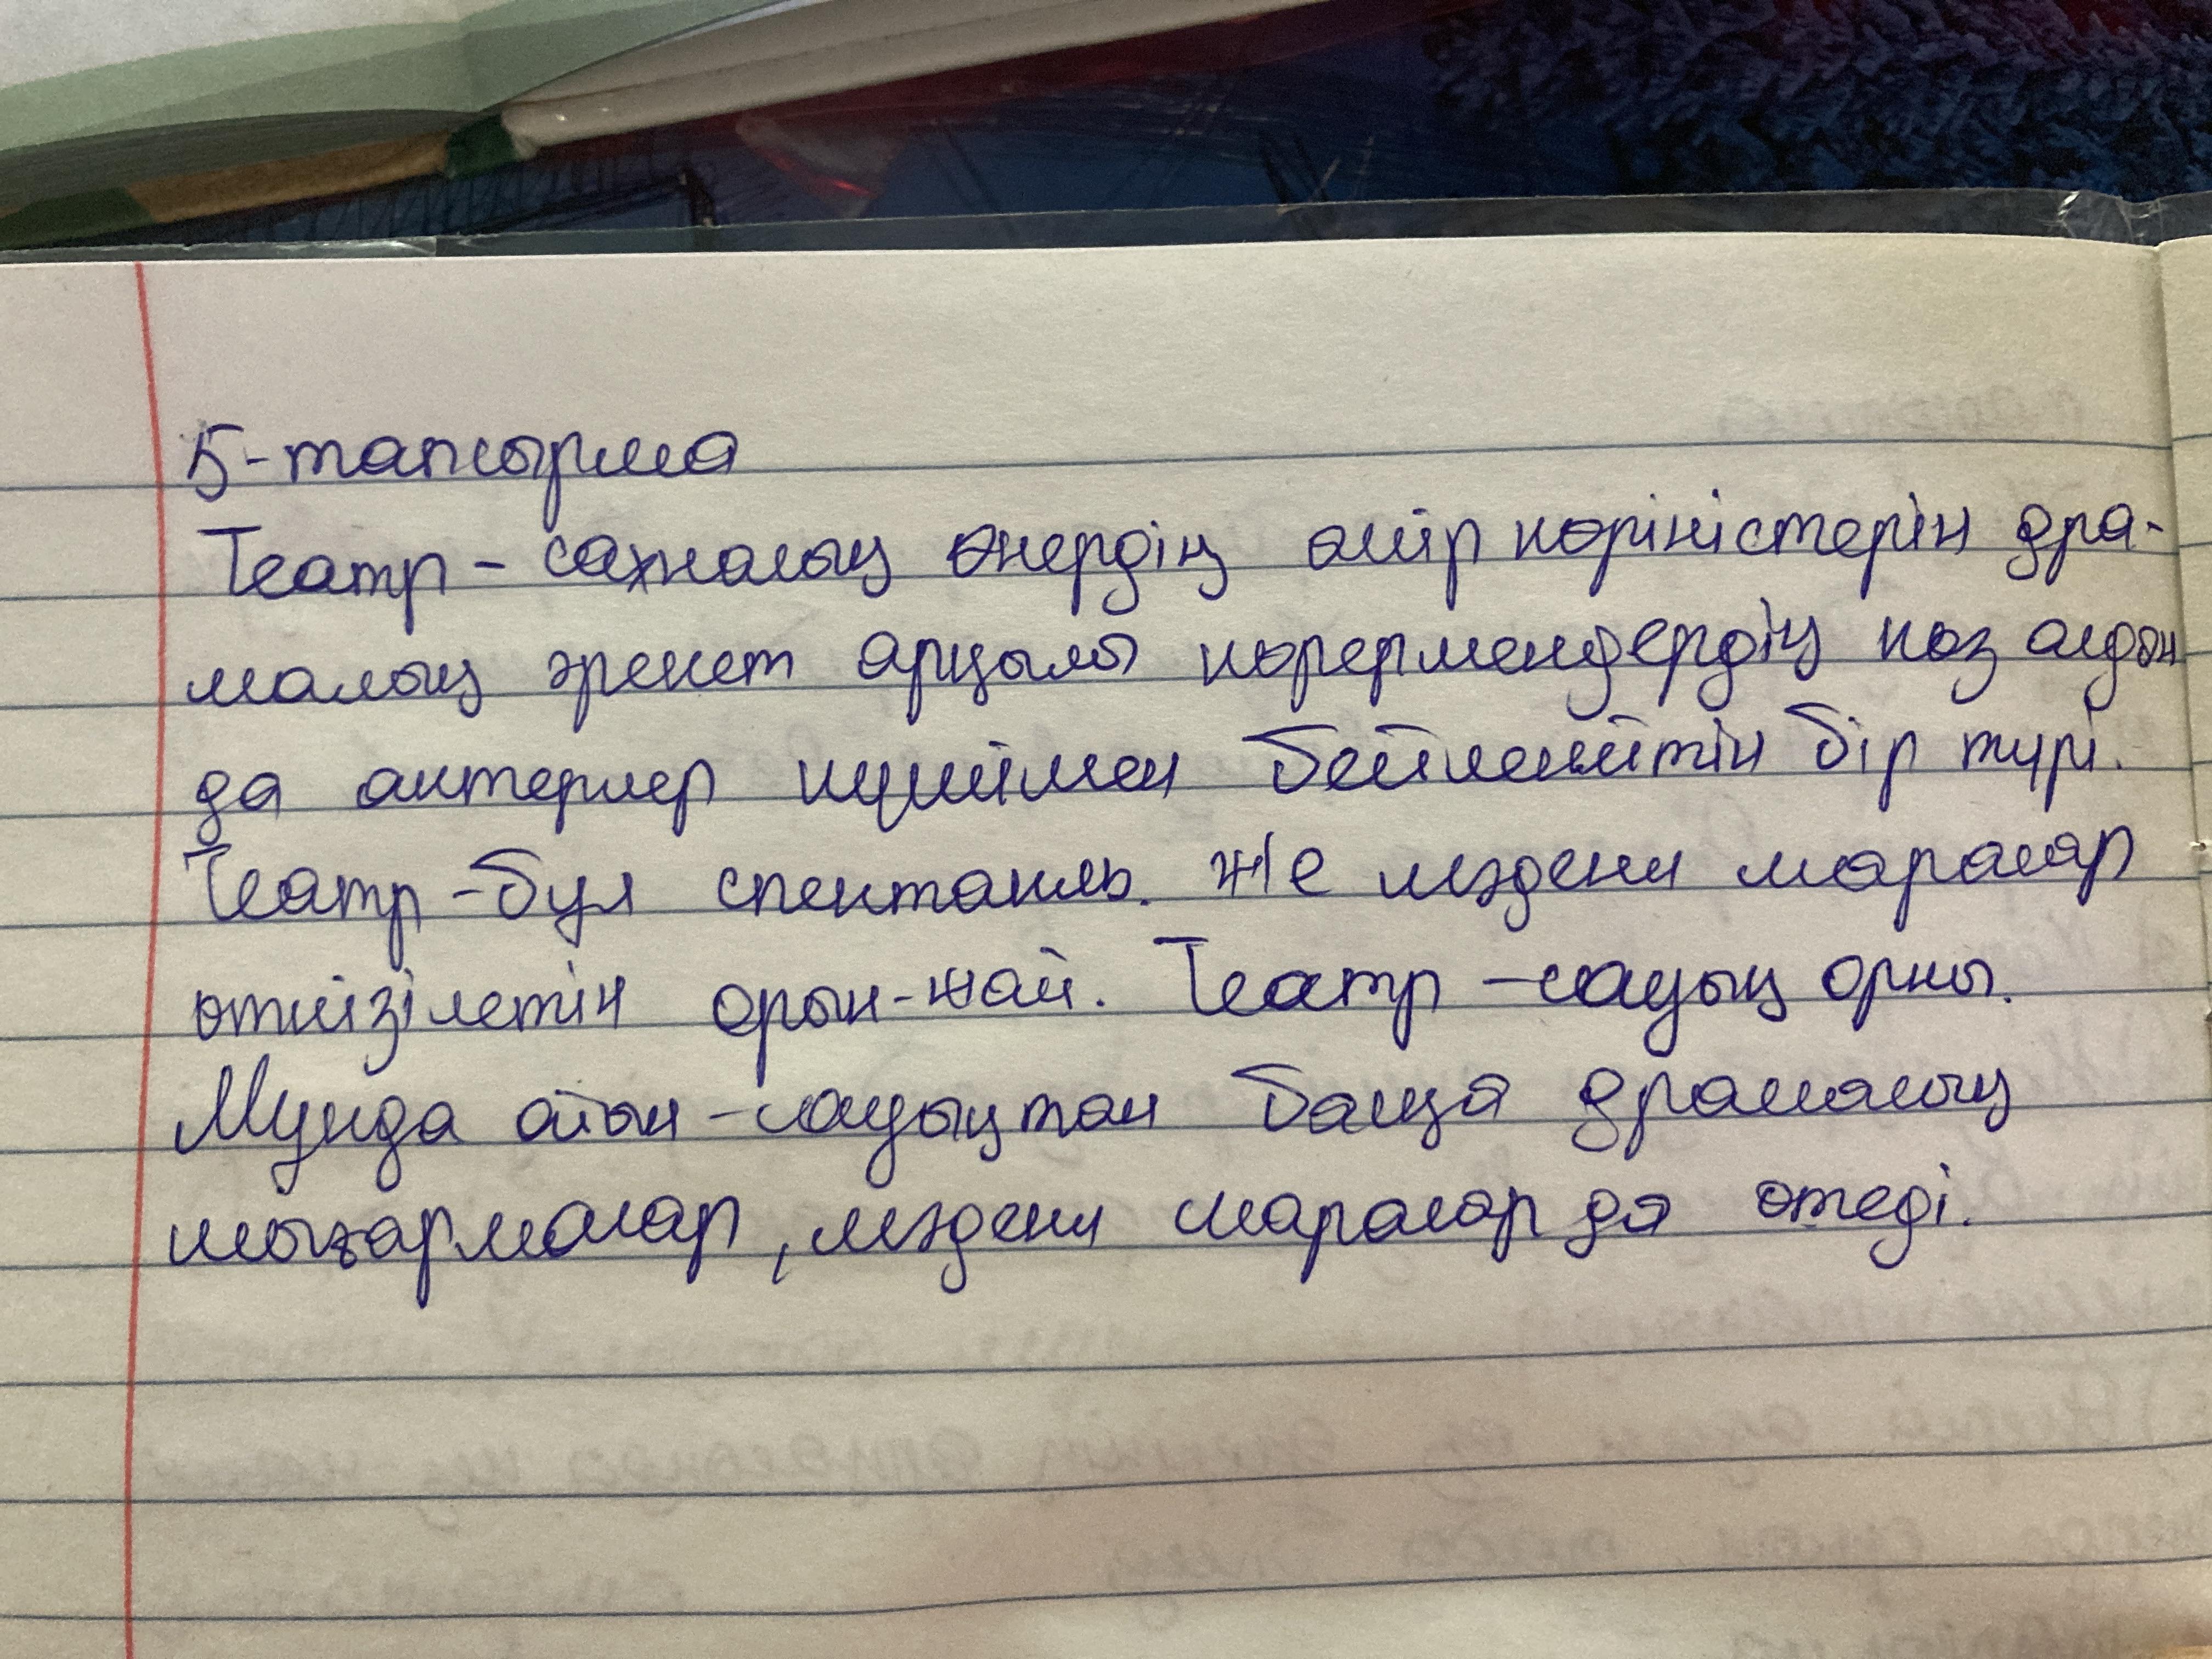 5-тапсырма
Театр - сахналық өнердің өмір көріністерін дра-
малық әрекет арқылы көрермендердің көз алдын
да актерлер күшімен бейнелейтін бір түрі.
Театр - бұл спектакль. Же мәдени маралар
өткізілетін орын-жай. Театр - сауық орны.
Мұнда ойын - сауықтан басқа драмалық
шығармалар, мәдени шаралар да өтеді.